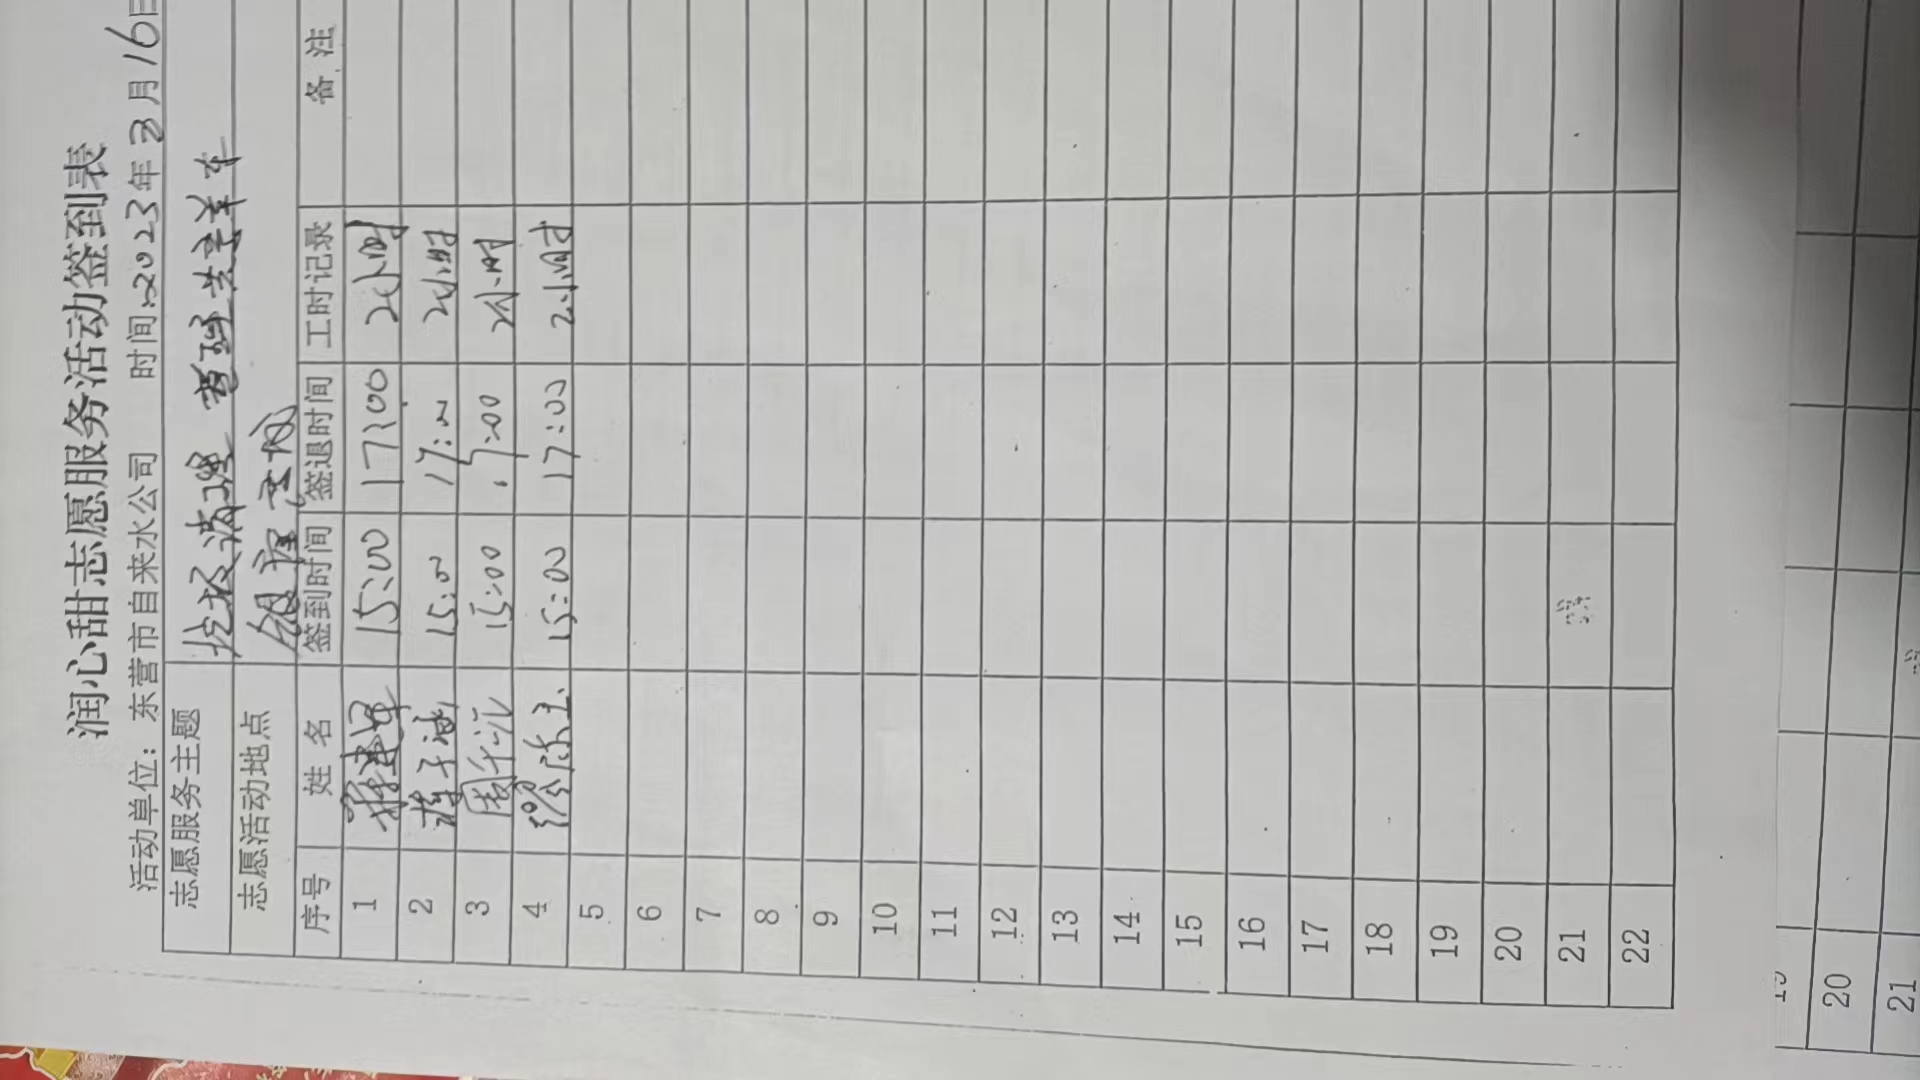 润心甜志愿服务活动签到表
活动单位：东营市自来水公司 时间:2023年3月16日
志愿服务主题 垃圾清理 整理共享单车
志愿活动地点
序号 姓名 签到时间 签退时间 工时记录 备注
1 15:00 17:00 2小时
2 15:00 17:00 2小时
3 15:00 17:00 2小时
4 15:00 17:00 2小时
5
6
7
8
9
10
11
12
13
14
15
16
17
18
19
20
21
22
20
21